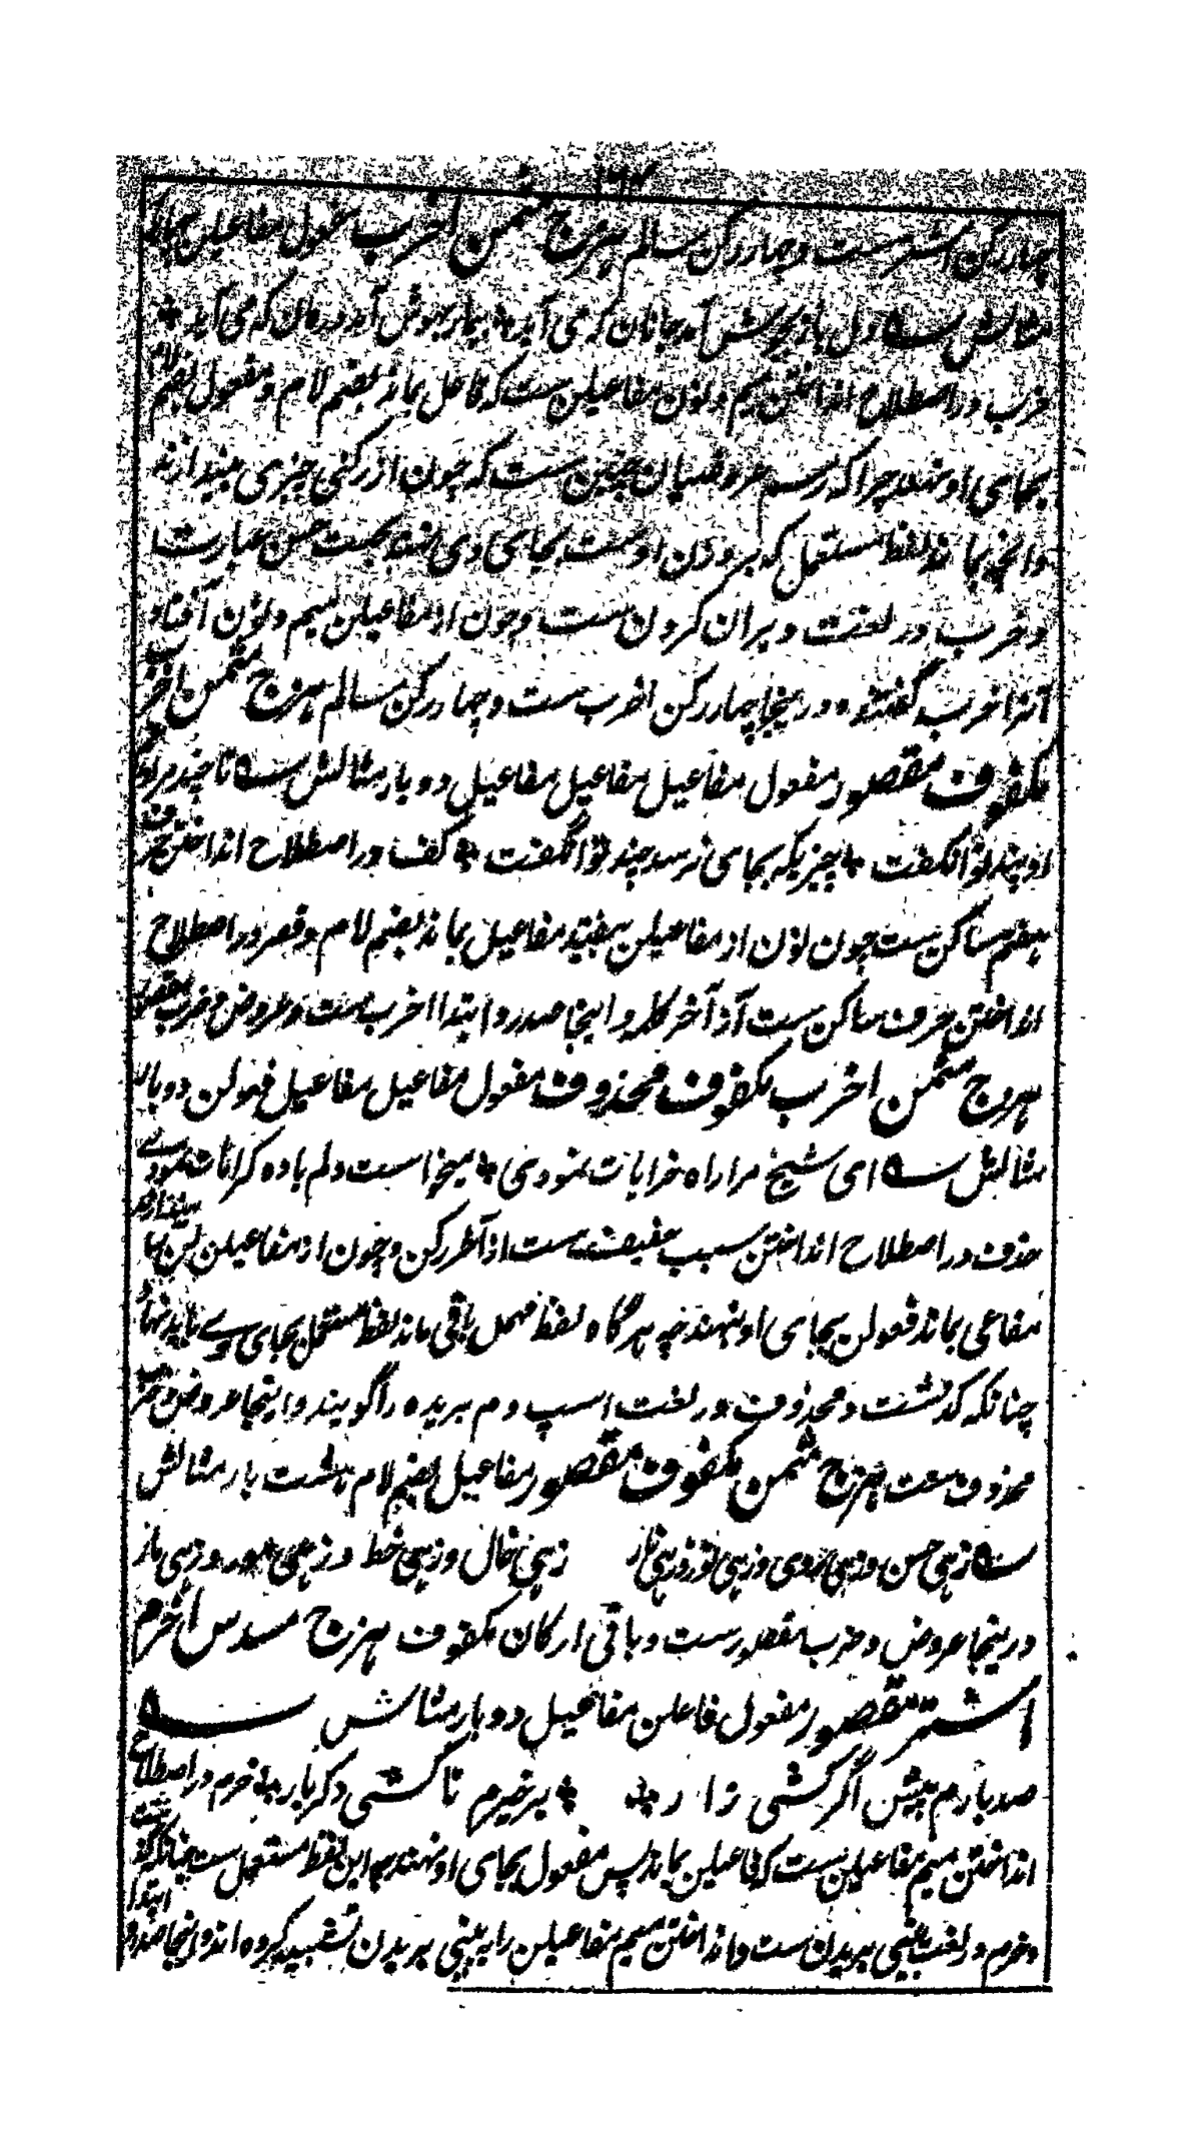 ۱۶۳
چهار رکن اشترست و چهار رکن سالم هزج مثمن اخرب مفعول مفاعیلن چهاربار
مثالش دل باز بجوش آمد جانان که می آید بیمار بهوش آمد درمان که می آید
خرب در اصطلاح انداختن میم و نون مفاعیلن ست که فاعیل بماند بضم لام و مفعول بضم لام
بجای او نهند چرا که رسم عروضیان چنین ست که چون از رکنی چیزی بیندازند
و آنچه بماند لفظ مستعمل که بر وزن اوست بجای وی نهند بجهت حسن عبارت
و خرب در لغت ویران کردن ست و چون از مفاعیلن میم و نون افتاد
آنرا اخرب گفتند و درینجا چهار رکن اخرب ست و چهار رکن سالم هزج مثمن اخرب
مکفوف مقصور مفعول مفاعیل مفاعیل مفاعیل دو بار مثالش تا چند مرا
او پند توانگفت چیزیکه بجای نرسد چند توانگفت کف در اصطلاح انداختن حرف
هفتم ساکن ست چون نون از مفاعیلن بیفتد مفاعیل بماند بضم لام و قصر در اصطلاح
انداختن حرف ساکن ست از آخر کلمه و اینجا صدر و ابتدا اخرب ست و عروض و ضرب مقصور
هزج مثمن اخرب مکفوف محذوف مفعول مفاعیل مفاعیل فعولن دو بار
مثالش ای شیخ مرا راه خرابات نمودی میخواست دلم باده کرامات نمودی
حذف در اصطلاح انداختن سبب خفیف ست از آخر رکن و چون از مفاعیلن لن بیندازند
مفاعی بماند فعولن بجای او نهند چه هرگاه لفظ مهمل باقی ماند لفظ مستعمل بجای وے باید نهاد
چنانکه گذشت و محذوف در لغت اسپ دم بریده را گویند و اینجا عروض و ضرب
محذوف ست هزج مثمن مکفوف مقصور مفاعیل بضم لام هشت بار مثالش
زهی حسن و زهی روی و زهی نور و زهی نار زهی خال و زهی خط و زهی مور و زهی مار
درینجا عروض و ضرب مقصورست و باقی ارکان مکفوف هزج مسدس اخرم
اشتر مقصور مفعول فاعلن مفاعیل دو بار مثالش
صد بارم پیش اگر کشی زار برخیزم تا کشی دگر بار خرم در اصطلاح
انداختن میم مفاعیلن ست که فاعیلن بماند پس مفعولن بجای او نهند چه این لفظ مستعمل ست چنانکه گذشت
و خرم در لغت بینی بریدن ست و انداختن میم مفاعیلن را به بینی بریدن تشبیه کرده اند و اینجا صدر و ابتدا